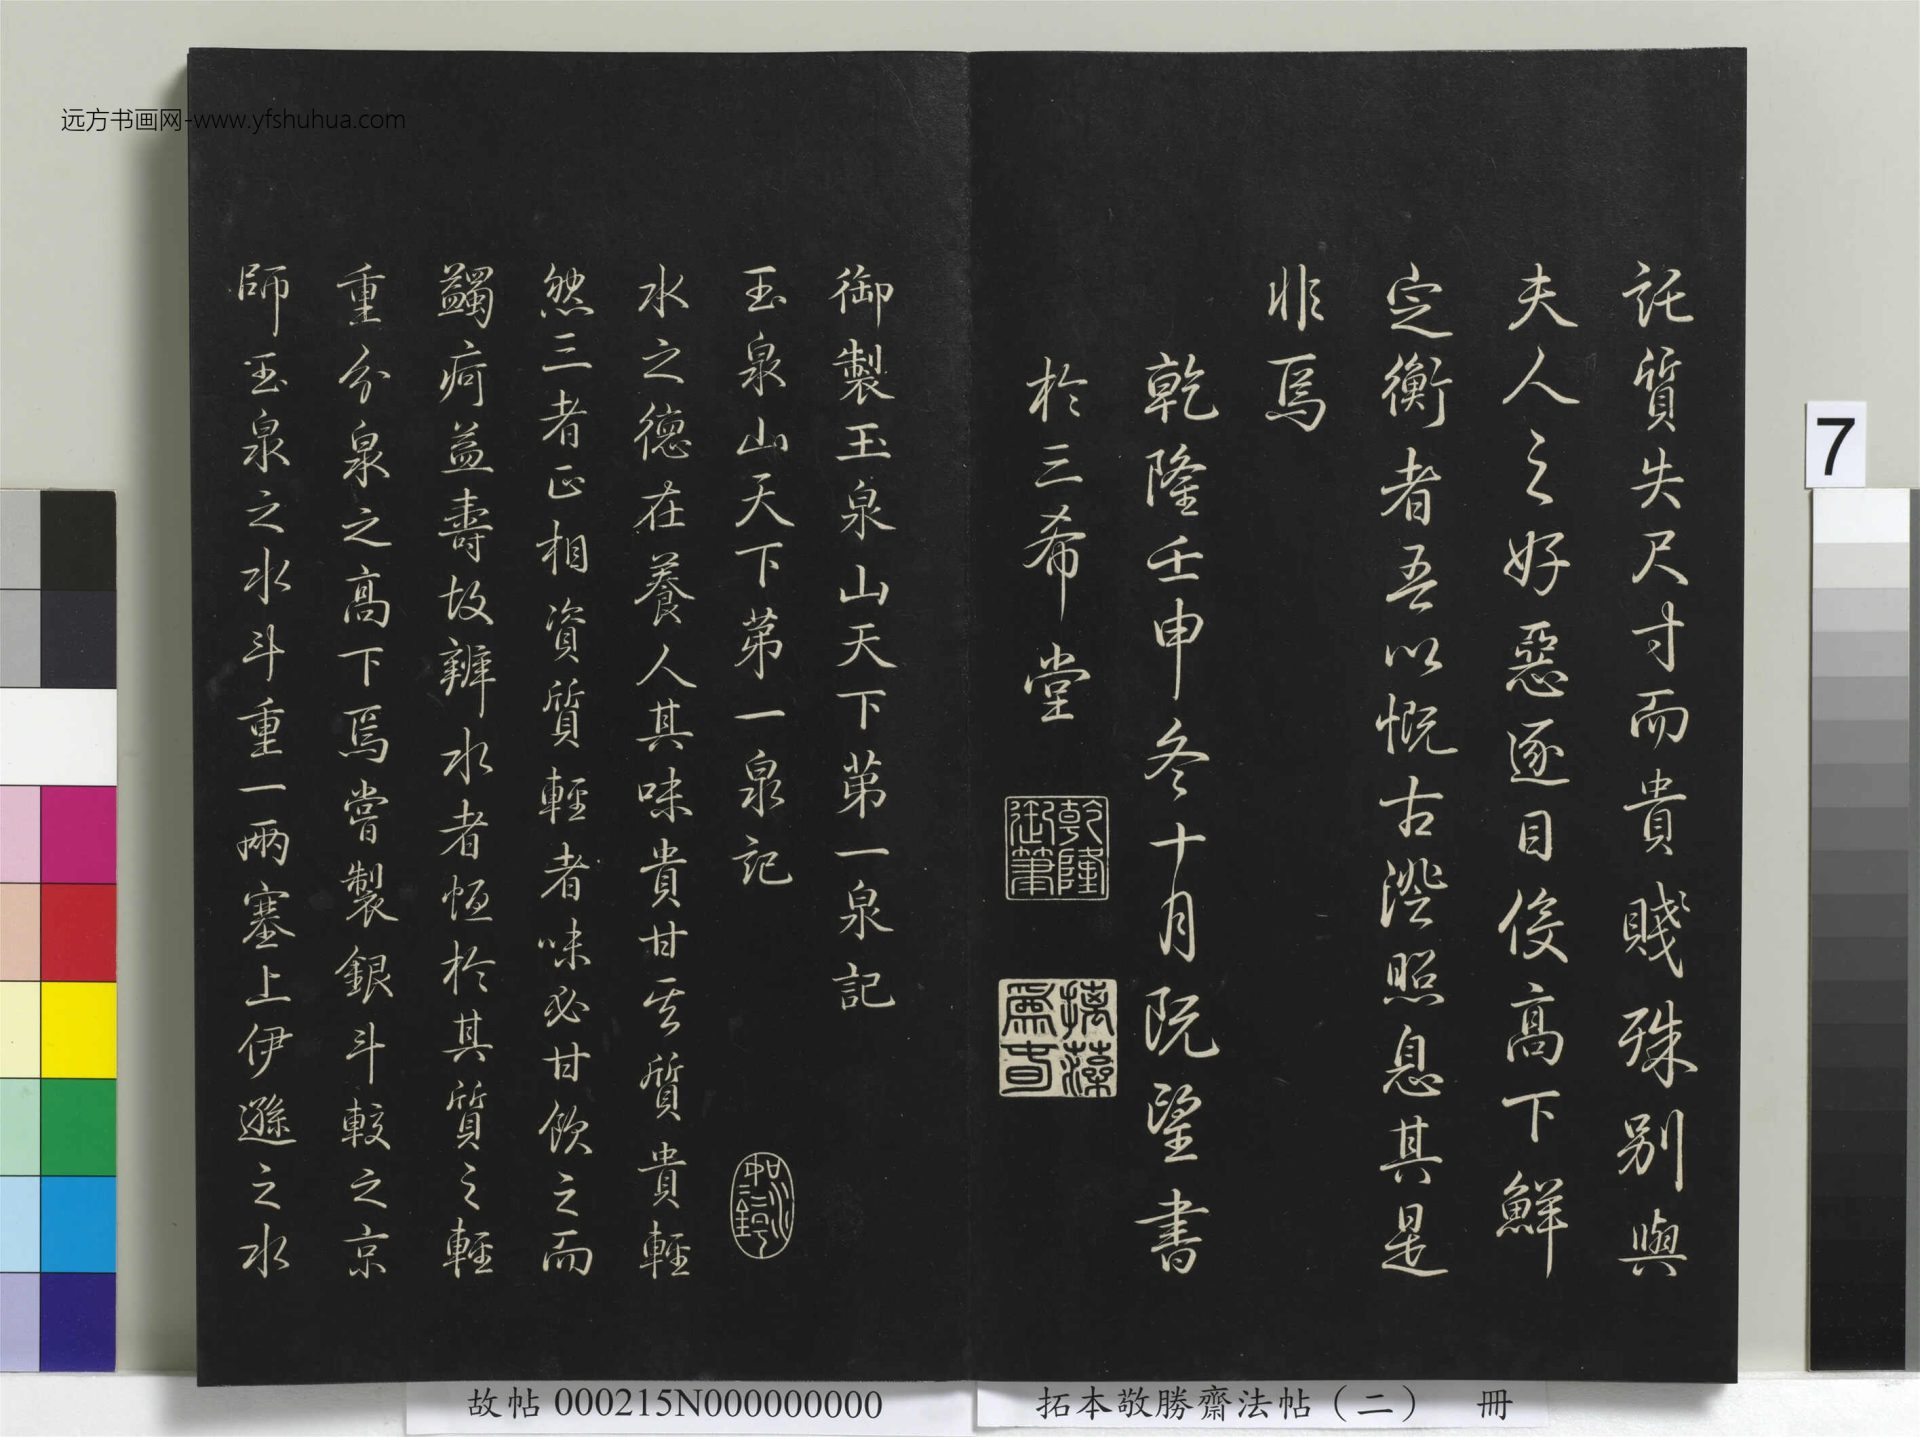 远方书画网-www.yfshuhua.com
託質失尺寸而貴賤殊別與
夫人之好惡逐目侫高下鮮
定衡者吾以慨古澄照息其是
非焉
乾隆壬申冬十月既望書
於三希堂
乾隆
御筆
摛藻
為春
御製玉泉山天下第一泉記
玉泉山天下第一泉記
水之德在養人其味貴甘其質貴輕
然三者正相資質輕者味必甘飲之而
蠲疴益壽故辨水者恆於其質之輕
重分泉之高下焉嘗製銀斗較之京
師玉泉之水斗重一兩塞上伊遜之水
7
故帖 000215N000000000
拓本敬勝齋法帖（二） 冊